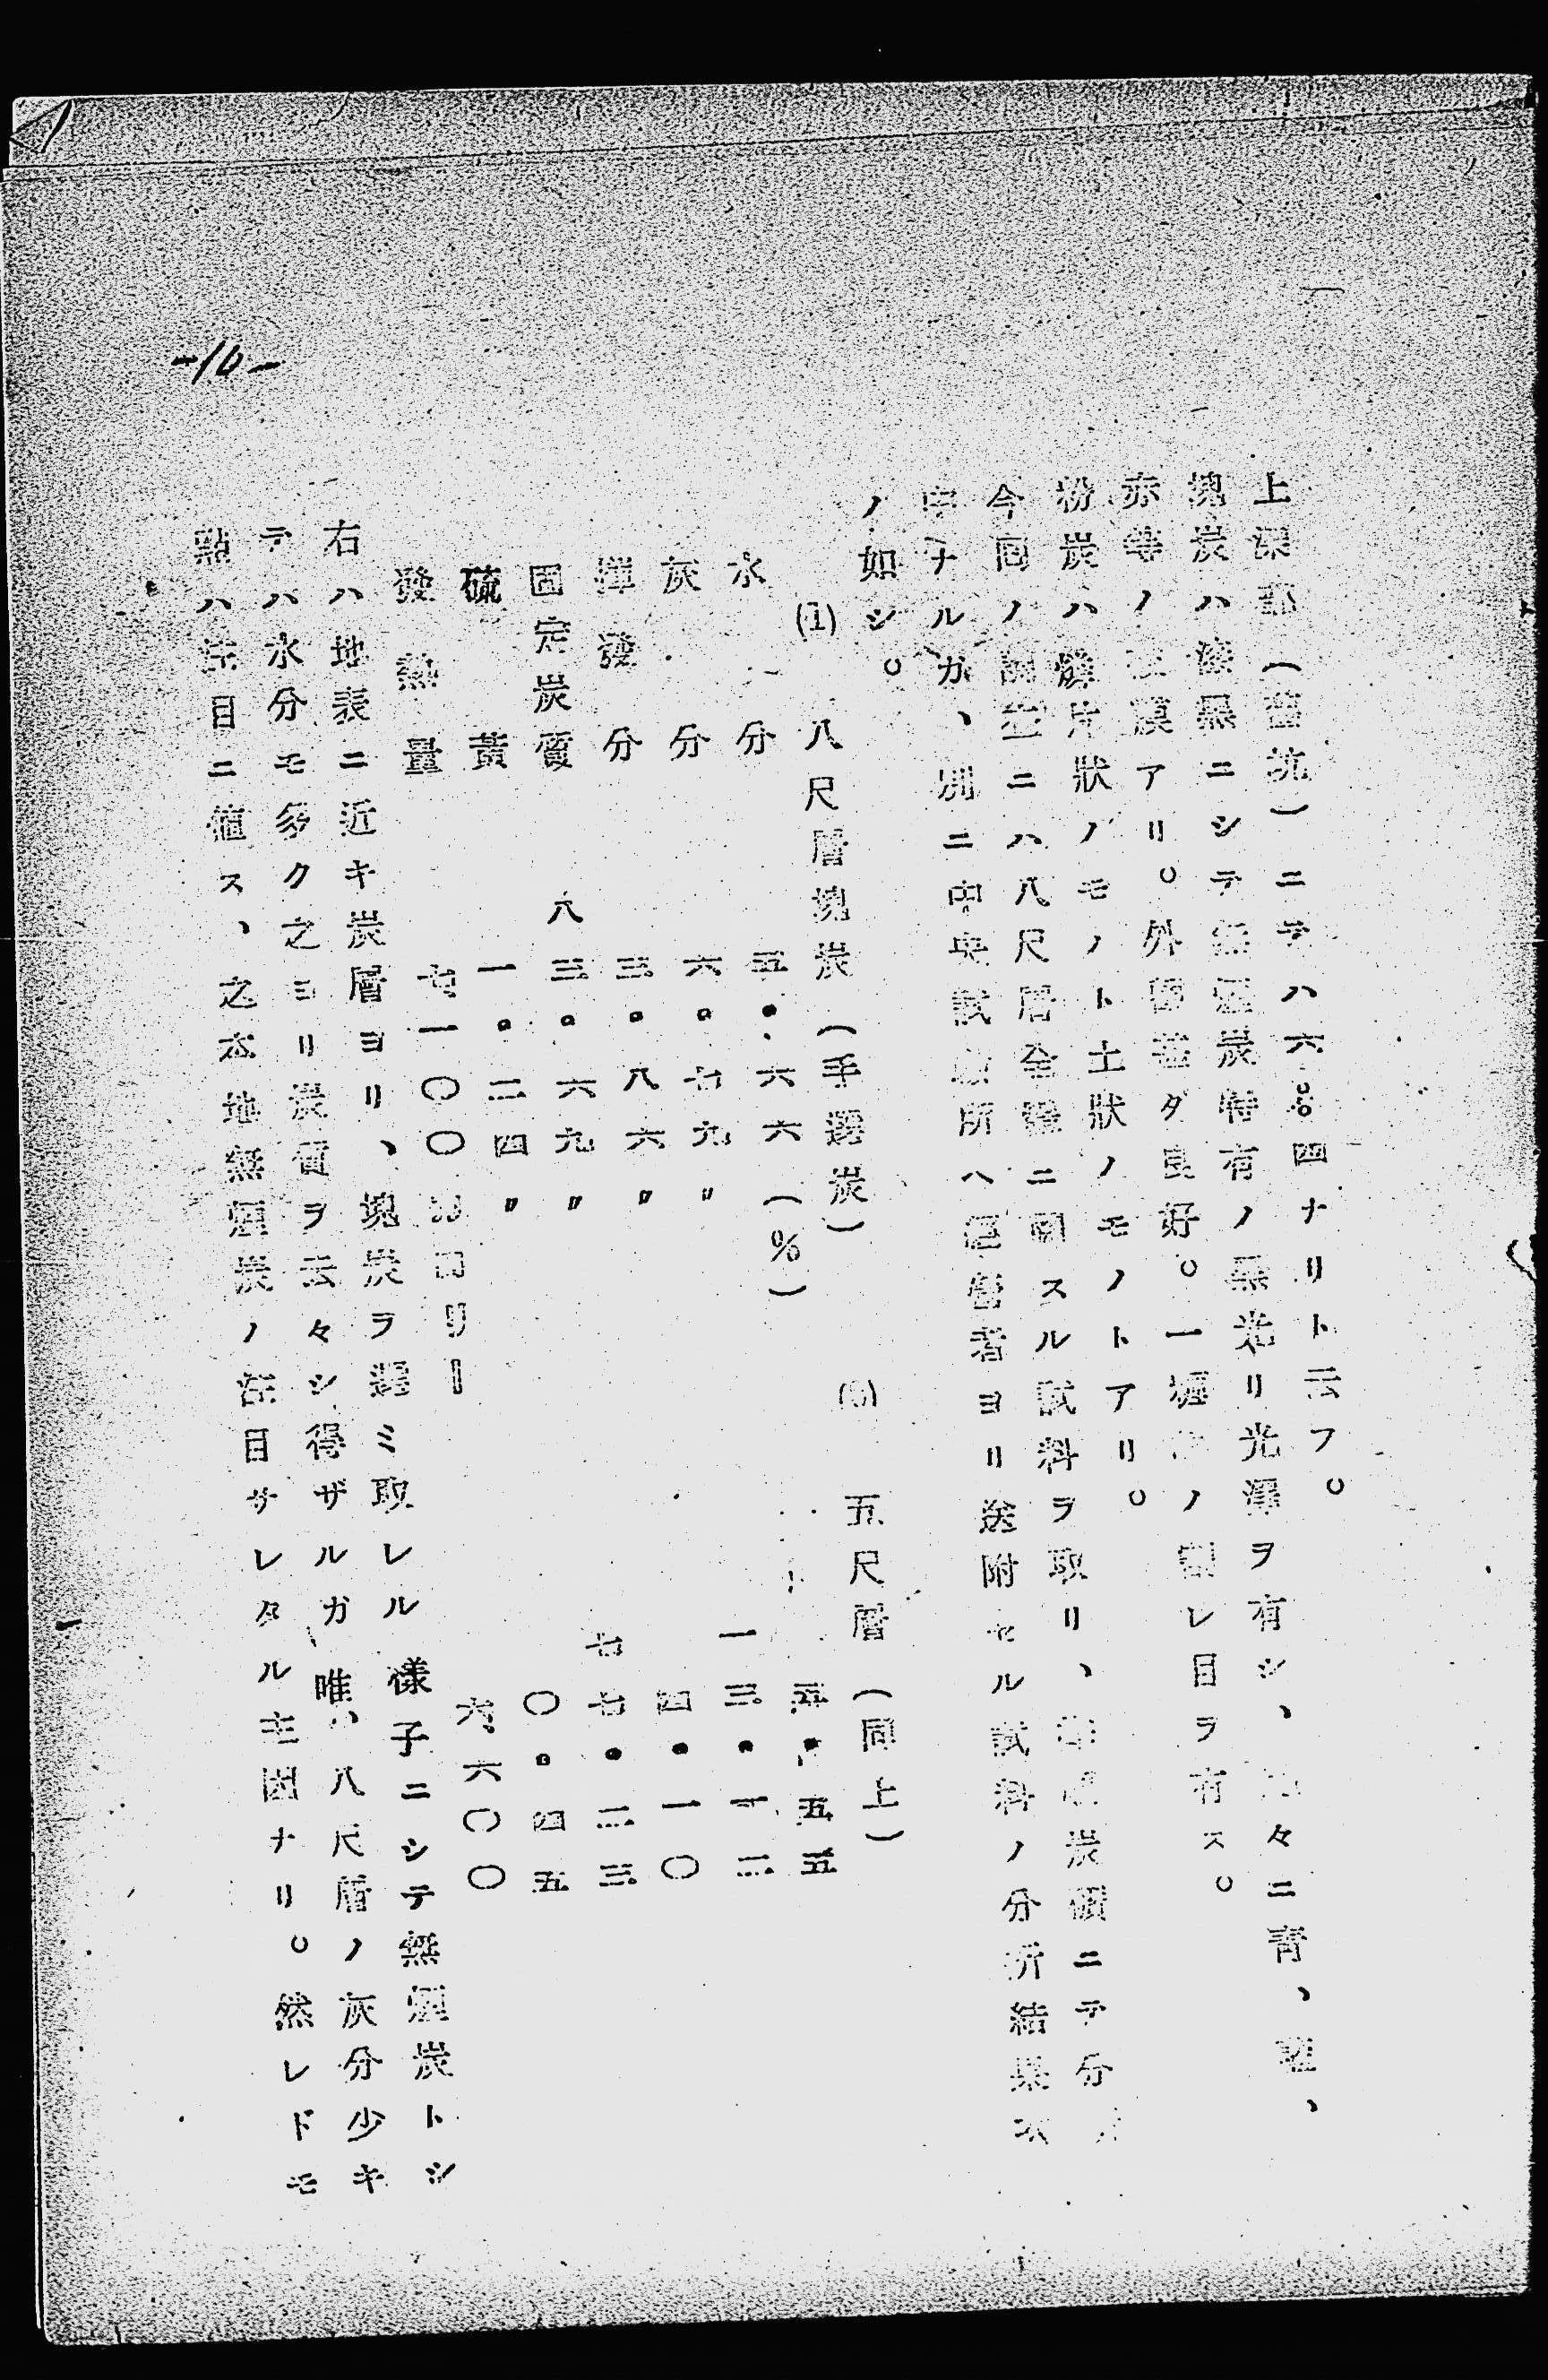 -10-
上深部(舊坑)ニテハ六%四ナリト云フ。
塊炭ハ漆黒ニシテ無煙炭特有ノ黒光リ光澤ヲ有シ、々ニ青、
赤等ノアリ。外觀甚ダ良好。一塊ノレ目ヲ有ス。
粉炭ハ鱗片狀ノモノト土狀ノモノトアリ。
今回ノ調査ニハ八尺層全體ニ關スル試料ヲ取リ、炭礦ニテ分
中ナルガ、別ニ中央試驗所ヘ經營者ヨリ送附セル試料ノ分析結果次
ノ如シ。
(1) 八尺層塊炭(手選炭) 五尺層(同上)
水分 五・六六(%) 五・五五
灰分 六・七九〃 一三・一二
揮發分 三・八六〃 四・一〇
固定炭質 八三・六九〃 七七・二三
硫黃 一・二四〃 〇・四五
發熱量 七一〇〇カロリー 六、六〇〇
右ハ地表ニ近キ炭層ヨリ、塊炭ヲ選ミ取レル樣子ニシテ無煙炭トシ
テハ水分モ多ク之ヨリ炭質ヲ云々シ得ザルガ唯、八尺層ノ灰分少キ
點ハ注目ニ値ス、之本地無煙炭ノ注目サレタル主因ナリ。然レドモ